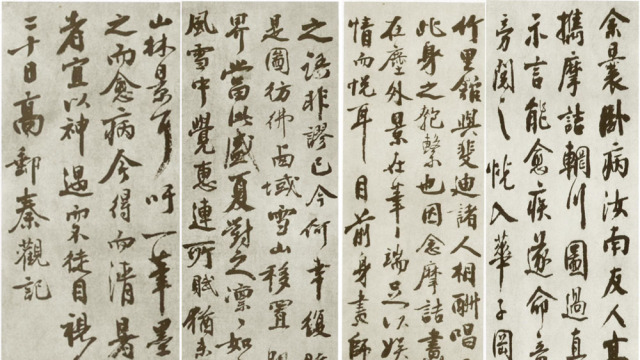 余曩臥病汝南友人高
攜摩詰輞川圖過直
示言能愈疾遂命
旁閱之恍入華子岡
竹里館與斐迪諸人相酬唱
此身之匏繫也因念摩詰畫
在塵外景在筆端足以娛
情而悅耳目前身畫師
之語非謬已今何幸復
是圖彷彿西域雪山移置
界當此盛夏對之凜凜如
風雪中覺惠連所賦猶未
山林景耳吁一筆墨
之而愈病今得而清暑
者宜以神遇而不徒目視
二十日高郵秦觀記